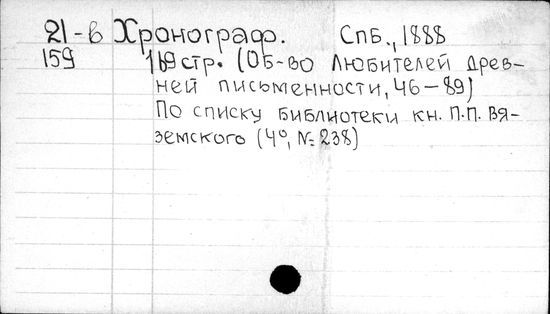 21-в Хронограф. Спб., 1888
159 169 стр. (Об-во любителей древ-
ней письменности, 46-89)
По списку библиотеки кн. П.П. Вя-
земского (4°, № 238)